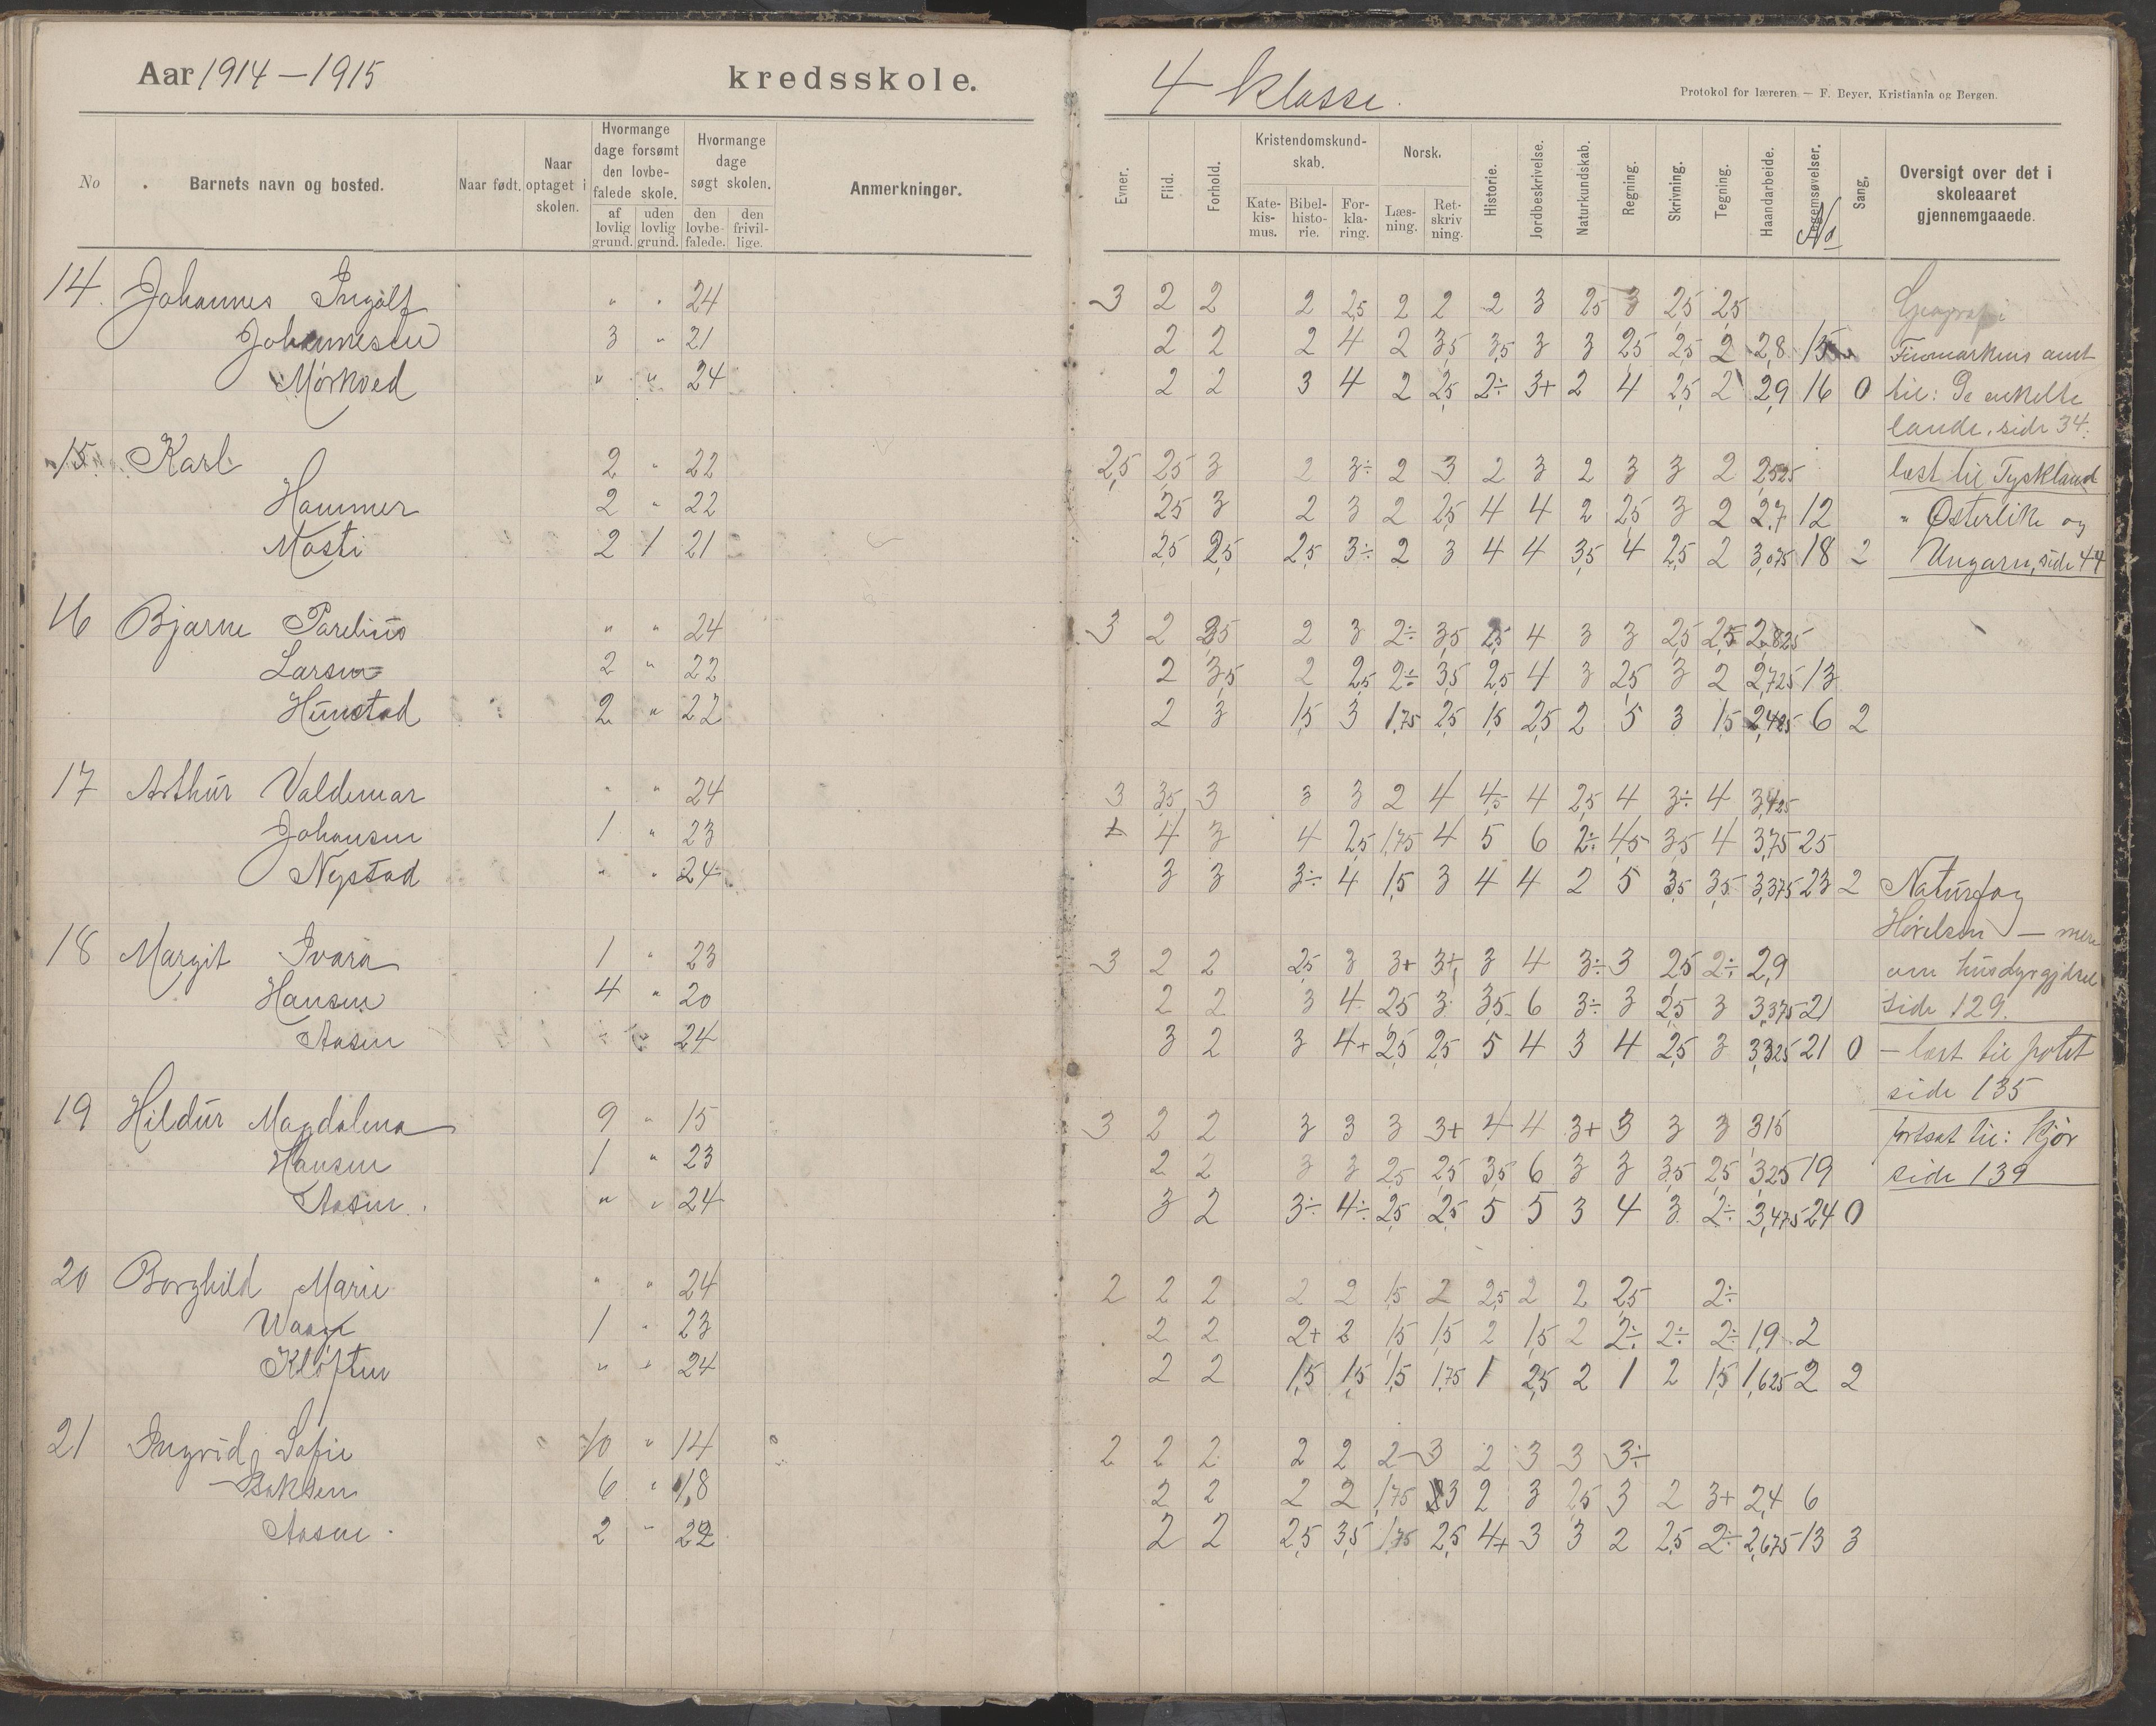 Aar 1914-1915 kredsskole. 4 klasse.
Protokol for læreren. — F. Beyer, Kristiania og Bergen.
No
Barnets navn og bosted.
Naar født.
Naar optaget i skolen.
Hvormange dage forsømt den lovbefalede skole.
af lovlig grund.
uden lovlig grund.
Hvormange dage søgt skolen.
den lovbefalede.
den frivillige.
Anmerkninger.
Evner.
Flid.
Forhold.
Kristendomskundskab.
Katekismus.
Bibelhistorie.
Forklaring.
Norsk.
Læsning.
Retskrivning.
Historie.
Jordbeskrivelse.
Naturkundskab.
Regning.
Skrivning.
Tegning.
Haandarbeide.
Legemsøvelser.
No
Sang.
Oversigt over det i skoleaaret gjennemgaaede.
14. Johannes Ingolf " " 24 3 2 2 2 2,5 2 2 2 3 2,5 3 2,5 2,5 Geografi
Johannesen 3 " 21 2 2 2 4 2 3,5 3,5 3 3 2,5 2,5 2 2,8 15 Finmarkens amt
Mørkved " " 24 2 2 3 4 2 2,5 2÷ 3+ 2 4 2,5 2 2,9 16 0 til: De enkelte
lande, side 34.
15. Karl 2 " 22 2,5 2,5 3 2 3÷ 2 3 2 3 2 3 3 2 2,525 læst til Tyskland
Hammer 2 " 22 2,5 3 2 3 2 2,5 4 4 2 2,5 3 2 2,7 12 " Østerike og
Mosti 2 1 21 2,5 2,5 2,5 3÷ 2 3 4 4 3,5 4 2,5 2 3,075 18 2 Ungarn, side 44
16 Bjarne Parelius " " 24 3 2 3,5 2 3 2÷ 3,5 2,5 4 3 3 2,5 2,5 2,825
Larsen 2 " 22 2 3,5 2 2,5 2÷ 3,5 2,5 4 3 2,5 3 2 2,725 13
Hunstad 2 " 22 2 3 1,5 3 1,75 2,5 1,5 2,5 2 5 3 1,5 2,425 6 2
17 Arthur Valdemar " " 24 3 3,5 3 3 3 2 4 4,5 4 2,5 4 3÷ 4 3,425
Johansen 1 " 23 4 3 4 2,5 1,75 4 5 6 2÷ 4,5 3,5 4 3,75 25
Nystad " " 24 3 3 3÷ 4 1,5 3 4 4 2 5 3,5 3,5 3,375 23 2 Naturfag
Hørelsen — mere
18 Margit Ivara 1 " 23 3 2 2 2,5 3 3+ 3+ 3 4 3÷ 3 2,5 2÷ 2,9 om husdyrgjødsel
Hansen 4 " 20 2 2 3 4 2,5 3 3,5 6 3÷ 3 2,5 3 3,375 21 side 129.
Aasen " " 24 3 2 3 4+ 2,5 2,5 5 4 3 4 2,5 3 3,325 21 0 — læst til potet
side 135
19 Hildur Magdalena 9 " 15 3 2 2 3 3 3 3+ 4 4 3+ 3 3 3 3,15 fortsat til: Kjør
Hansen 1 " 23 2 2 3 3 2,5 2,5 3,5 6 3 3 3,5 2,5 3,25 19 side 139
Aasen. " " 24 3 2 3÷ 4÷ 2,5 2,5 5 5 3 4 3 2÷ 3,475 24 0
20 Borghild Marie " " 24 2 2 2 2 2 1,5 2 2,5 2 2 2,5 2÷
Waage 1 " 23 2 2 2+ 2 1,5 1,5 2 1,5 2 2÷ 2÷ 2÷ 1,9 2
Kløften " " 24 2 2 1,5 1,5 1,5 1,75 1 2,5 2 1 2 1,5 1,625 2 2
21 Ingrid Sofie 10 " 14 2 2 2 2 2 2 3 2 3 3 3÷
Isaksen 6 " 18 2 2 2 2 1,75 3 2 3 2,5 3 2 3+ 2,4 6
Aasen 2 " 22 2 2 2,5 3,5 1,75 2,5 4+ 3 3 2 2,5 2÷ 2,675 13 3